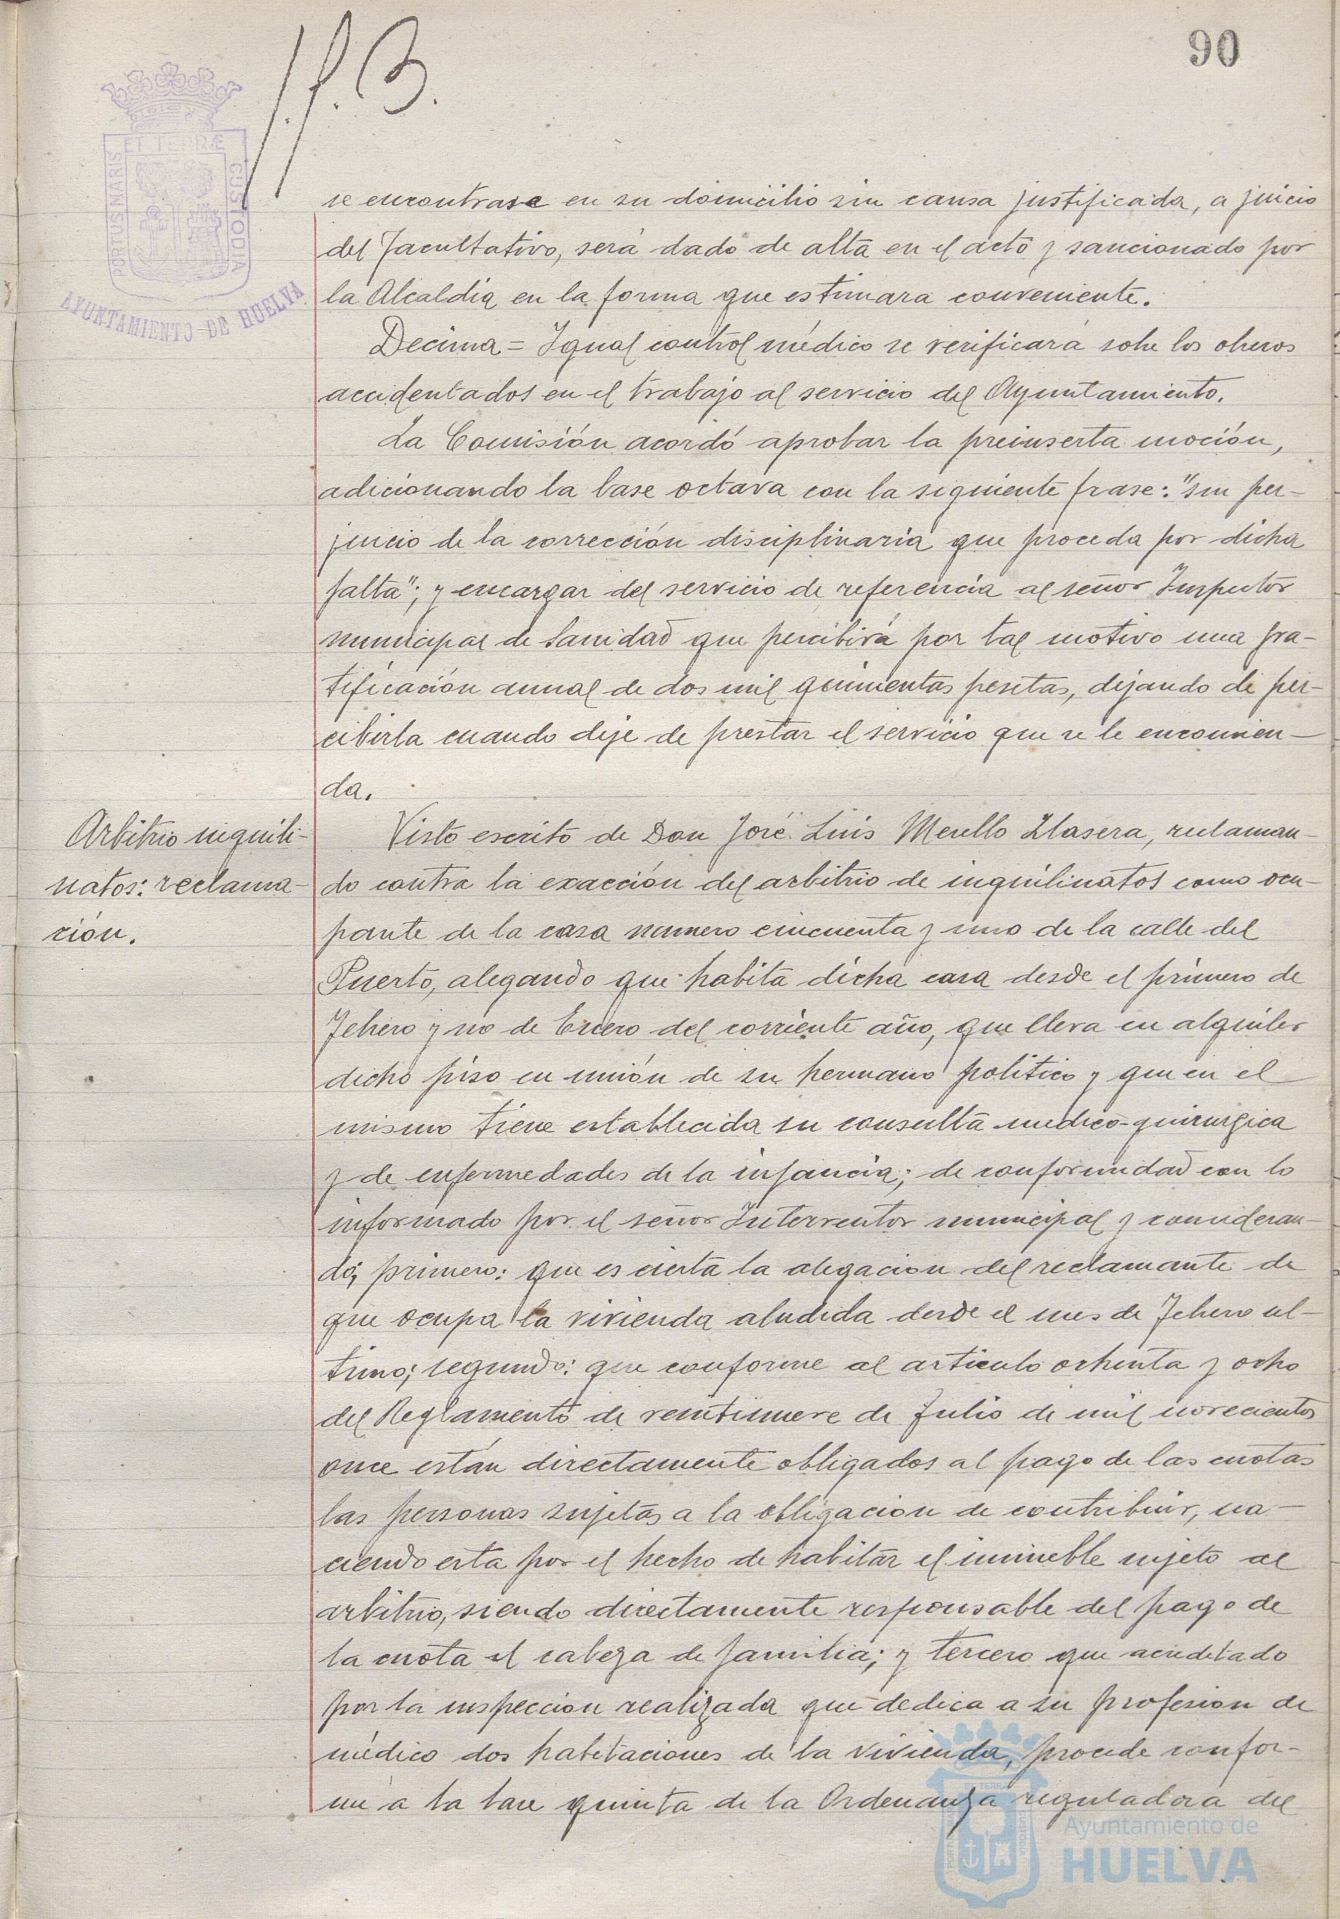 90
se encontrase en su domicilio sin causa justificada, a juicio
del facultativo, será dado de alta en el acto y sancionado por
la Alcaldía en la forma que estimara conveniente.
Decima = Igual control médico se verificará sobre los obreros
accidentados en el trabajo al servicio del Ayuntamiento.
La Comisión acordó aprobar la preinserta moción,
adicionando la base octava con la siguiente frase: "sin per-
juicio de la corrección disciplinaria que proceda por dicha
falta"; y encargar del servicio de referencia al señor Inspector
municipal de Sanidad que percibirá por tal motivo una gra-
tificación annual de dos mil quinientas pesetas, dejando de per-
cibirla cuando deje de prestar el servicio que se le encomien-
da.
Arbitrio inquili-
natos: reclama-
ción.
Visto escrito de Don José Luis Merello Llasera, reclaman-
do contra la exacción del arbitrio de inquilinatos como ocu-
pante de la casa numero cincuenta y uno de la calle del
Puerto, alegando que habita dicha casa desde el primero de
Febrero y no de Enero del corriente año, que lleva en alquiler
dicho piso en unión de su hermano politico y que en el
mismo tiene establecida su consulta medico-quirurgica
y de enfermedades de la infancia; de conformidad con lo
informado por el señor Interventor municipal y consideran-
do; primero: que es cierta la alegacion del reclamante de
que ocupa la vivienda aludida desde el mes de Febrero ul-
timo; segundo: que conforme al articulo ochenta y ocho
del Reglamento de veintinueve de Julio de mil novecientos
once están directamente obligados al pago de las cuotas
las personas sujetas a la obligacion de contribuir, na-
ciendo esta por el hecho de habitar el inmueble sujeto al
arbitrio, siendo directamente responsable del pago de
la cuota el cabeza de familia; y tercero que acreditado
por la inspeccion realizada que dedica a su profesion de
médico dos habitaciones de la vivienda, procede confor-
me a la base quinta de la Ordenanza reguladora del
PORTUS MARIS
ET TERRÆ
CUSTODIA
AYUNTAMIENTO DE HUELVA
Ayuntamiento de
HUELVA